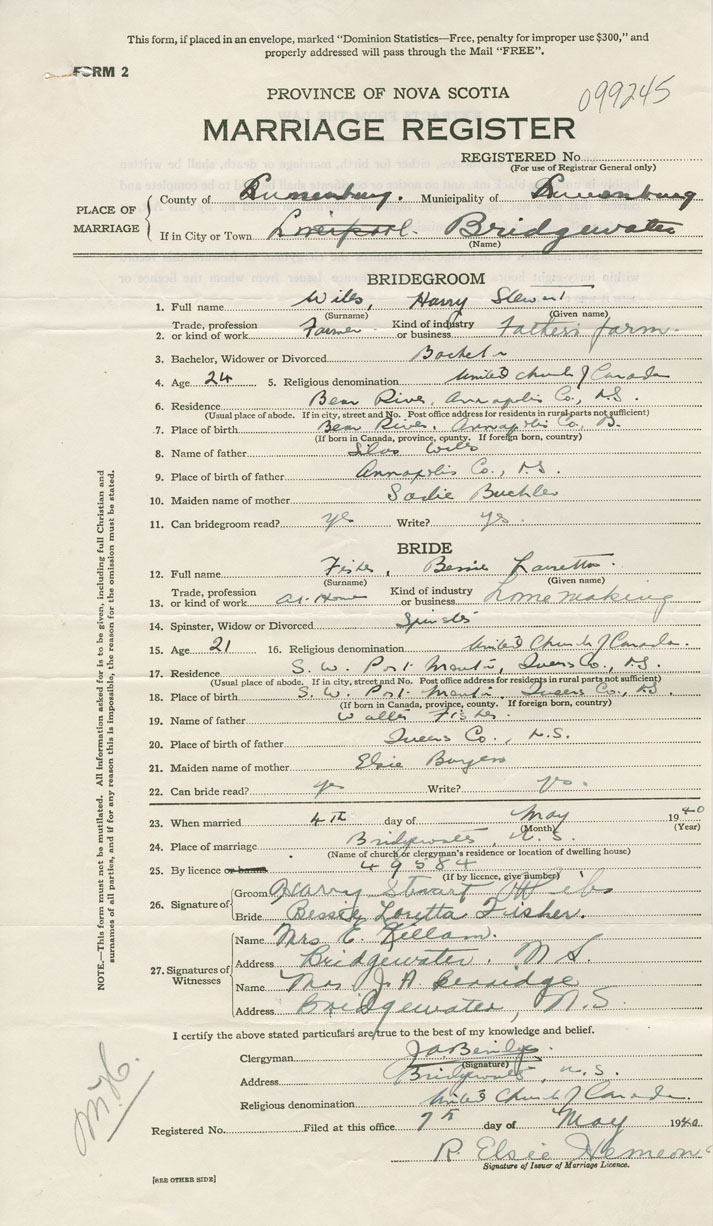 This form, if placed in an envelope, marked "Dominion Statistics—Free, penalty for improper use $300," and
properly addressed will pass through the Mail "FREE".
FORM 2
099245
PROVINCE OF NOVA SCOTIA
MARRIAGE REGISTER
REGISTERED No.
(For use of Registrar General only)
PLACE OF MARRIAGE
County of Lunenburg. Municipality of Lunenburg
If in City or Town Liverpool. Bridgewater
(Name)
BRIDEGROOM
1. Full name Harry Stewart
(Surname) (Given name)
2. Trade, profession or kind of work Farmer Kind of industry or business Father's farm.
3. Bachelor, Widower or Divorced Bachelor
4. Age 24 5. Religious denomination United Church of Canada
6. Residence Bear River, Annapolis Co., N.S.
(Usual place of abode. If in city, street and No. Post office address for residents in rural parts not sufficient)
7. Place of birth Bear River, Annapolis Co.,
(If born in Canada, province, county. If foreign born, country)
8. Name of father Silas
9. Place of birth of father Annapolis Co., N.S.
10. Maiden name of mother Sadie
11. Can bridegroom read? yes Write? yes.
BRIDE
12. Full name Fisher, Bessie Lauretta.
(Surname) (Given name)
13. Trade, profession or kind of work At Home Kind of industry or business Homemaking
14. Spinster, Widow or Divorced Spinster
15. Age 21 16. Religious denomination United Church of Canada.
17. Residence S. W. Port Mouton, Queens Co., N.S.
(Usual place of abode. If in city, street and No. Post office address for residents in rural parts not sufficient)
18. Place of birth S. W. Port Mouton Queens Co., N.S.
(If born in Canada, province, county. If foreign born, country)
19. Name of father Walter Fisher.
20. Place of birth of father Queens Co., N.S.
21. Maiden name of mother Elsie Burgess
22. Can bride read? yes Write? yes.
23. When married 4th day of May 1940
(Month) (Year)
24. Place of marriage Bridgewater, N.S.
(Name of church or clergyman's residence or location of dwelling house)
25. By licence or banns 49584
(If by licence, give number)
26. Signature of
Groom Harry Stewart
Bride Bessie Loretta Fisher.
27. Signatures of Witnesses
Name Mrs E. Killam.
Address Bridgewater, N.S.
Name Mrs. J. A.
Address Bridgewater, N.S.
I certify the above stated particulars are true to the best of my knowledge and belief.
Clergyman J A
(Signature)
Address Bridgewater, N.S.
Religious denomination United Church of Canada.
Registered No. Filed at this office 7th day of May 1940
R. Elsie Hemeon
Signature of Issuer of Marriage Licence.
[SEE OTHER SIDE]
NOTE.—This form must not be mutilated. All information asked for is to be given, including full Christian and
surnames of all parties, and if for any reason this is impossible, the reason for the omission must be stated.